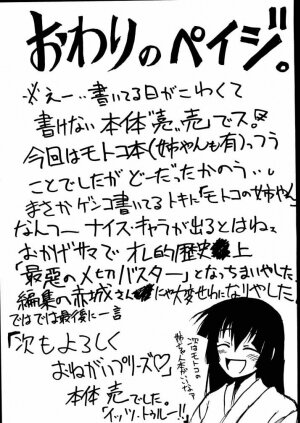 おわりのペイジ。
※えー‥書いてる日がこわくて
書けない本体売〟売」でス。
今回はモトコ本(姉ちゃんも有)っつう
ことでしたがどーだったかのう‥。
まさかゲンコ書いてるトキに「モトコの姉ちゃん」
なんつーナイス・キャラが出るとはねぇ
おかげサマでオレ的歴史上
「最悪のメ切バスター」となっちまいやした。
編集の赤城さんにゃ大変せわになりやした。
ではでは最後に一言
「次もよろしく
おねがいプリーズ♡」
本体売でした。
「イッツ・トゥルー!!」
次はモトコの
姉ちゃん本かいいなァ